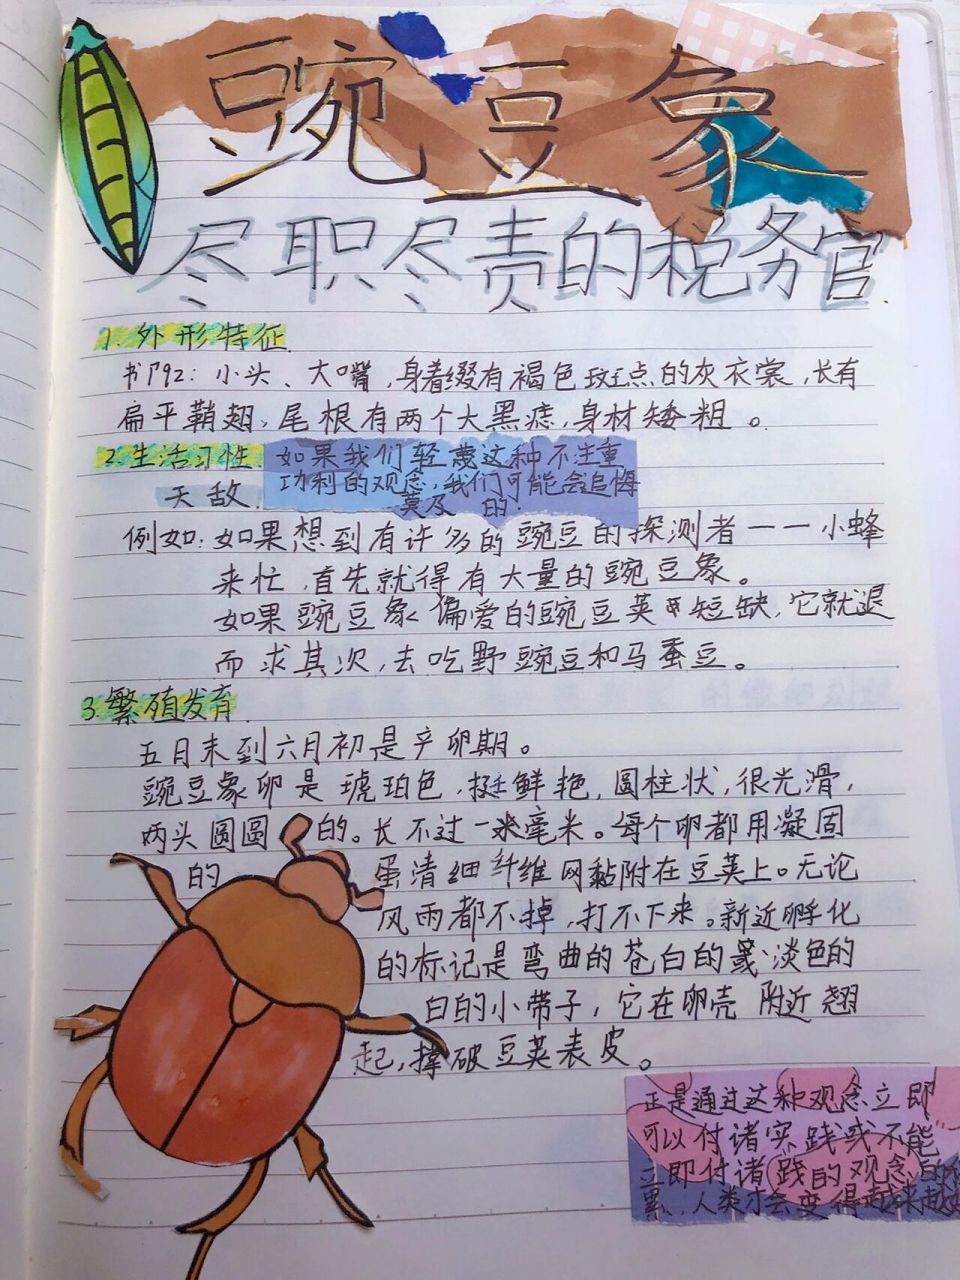 豌豆象
尽职尽责的税务官
1.外形特征
书P92:小头、大嘴,身着缀有褐色斑点的灰衣裳,长有
扁平鞘翅,尾根有两个大黑痣,身材矮粗。
2.生活习性
如果我们轻蔑这种不注重
功利的观念,我们可能会追悔
莫及的.
天敌
例如:如果想到有许多的豌豆的探测者——小蜂
来忙,首先就得有大量的豌豆象。
如果豌豆象偏爱的豌豆荚短缺,它就退
而求其次,去吃野豌豆和马蚕豆。
3.繁殖发育
五月末到六月初是产卵期。
豌豆象卵是琥珀色,挺鲜艳,圆柱状,很光滑,
两头圆圆的。长不过一米毫米。每个卵都用凝固
的蛋清细纤维网黏附在豆荚上。无论
风雨都不掉,打不下来。新近孵化
的标记是弯曲的苍白的或淡色的
白的小带子,它在卵壳附近翘
起,撑破豆荚表皮。
正是通过这种观念立即
可以付诸实践或不能
立即付诸践的观念的
累,人类才会变得越来越